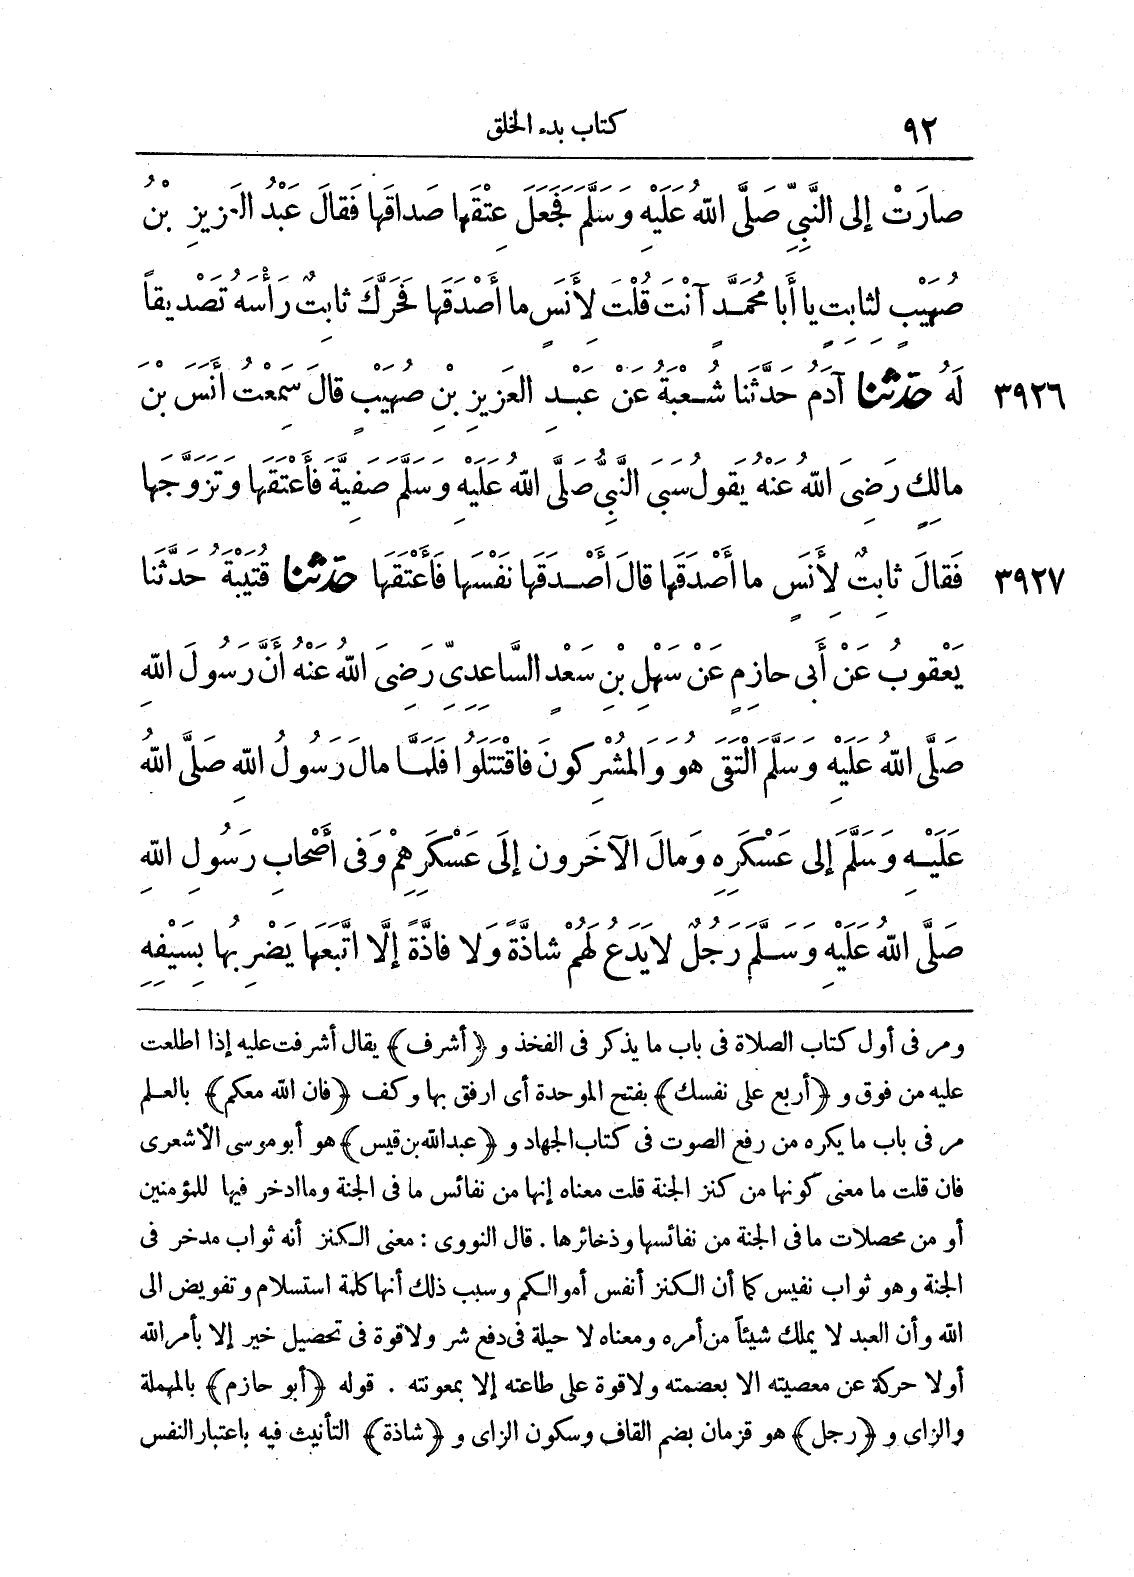 ٩٢ كتاب بدء الخلق
صارَتْ إلى النَّبِيِّ صَلَّى اللهُ عَلَيْهِ وَسَلَّمَ فَجَعَلَ عِتْقَها صَداقَها فَقالَ عَبْدُ العَزيزِ بْنُ
صُهَيْبٍ لثابِتٍ يا أَبا مُحَمَّدٍ آنْتَ قُلْتَ لِأَنَسٍ ما أَصْدَقَها فَحَرَّكَ ثابِتٌ رَأْسَهُ تَصْديقاً
٣٩٢٦ لَهُ حَدَّثَنا آدَمُ حَدَّثَنا شُعْبَةُ عَنْ عَبْدِ العَزيزِ بْنِ صُهَيْبٍ قالَ سَمِعْتُ أَنَسَ بْنَ
مالِكٍ رَضِىَ اللهُ عَنْهُ يَقُولُ سَبَى النَّبِىُّ صَلَّى اللهُ عَلَيْهِ وَسَلَّمَ صَفِيَّةَ فَأَعْتَقَها وَتَزَوَّجَها
٣٩٢٧ فَقالَ ثابِتٌ لِأَنَسٍ ما أَصْدَقَها قالَ أَصْدَقَها نَفْسَها فَأَعْتَقَها حَدَّثَنا قُتَيْبَةُ حَدَّثَنا
يَعْقُوبُ عَنْ أَبى حازِمٍ عَنْ سَهْلِ بْنِ سَعْدٍ السَّاعِدِىِّ رَضِىَ اللهُ عَنْهُ أَنَّ رَسُولَ اللهِ
صَلَّى اللهُ عَلَيْهِ وَسَلَّمَ الْتَقَى هُوَ وَالمُشْرِكونَ فاقْتَتَلُوا فَلَمَّا مالَ رَسُولُ اللهِ صَلَّى اللهُ
عَلَيْهِ وَسَلَّمَ إلى عَسْكَرِهِ وَمالَ الآخَرون إلَى عَسْكَرِهِمْ وَفى أَصْحابِ رَسُولِ اللهِ
صَلَّى اللهُ عَلَيْهِ وَسَلَّمَ رَجُلٌ لا يَدَعُ لَهُمْ شاذَّةً وَلا فاذَّةً إلَّا اتَّبَعَها يَضْرِبُها بِسَيْفِهِ
ومر فى أول كتاب الصلاة فى باب ما يذكر فى الفخذ و ﴿أشرف﴾ يقال أشرفت عليه إذا اطلعت
عليه من فوق و ﴿أربع على نفسك﴾ بفتح الموحدة أى ارفق بها وكف ﴿فان الله معكم﴾ بالعلم
مر فى باب ما يكره من رفع الصوت فى كتاب الجهاد و ﴿عبدالله بن قيس﴾ هو أبو موسى الأشعرى
فان قلت ما معنى كونها من كنز الجنة قلت معناه إنها من نفائس ما فى الجنة وما ادخر فيها للمؤمنين
أو من محصلات ما فى الجنة من نفائسها وذخائرها . قال النووى : معنى الكنز أنه ثواب مدخر فى
الجنة وهو ثواب نفيس كما أن الكنز أنفس أموالكم وسبب ذلك أنها كلمة استسلام وتفويض الى
الله وأن العبد لا يملك شيئاً من أمره ومعناه لا حيلة فى دفع شر ولا قوة فى تحصيل خير إلا بأمر الله
أو لا حركة عن معصيته الا بعصمته ولا قوة على طاعته إلا بمعونته . قوله ﴿أبو حازم﴾ بالمهملة
والزاى و ﴿رجل﴾ هو قزمان بضم القاف وسكون الزاى و ﴿شاذة﴾ التأنيث فيه باعتبار النفس